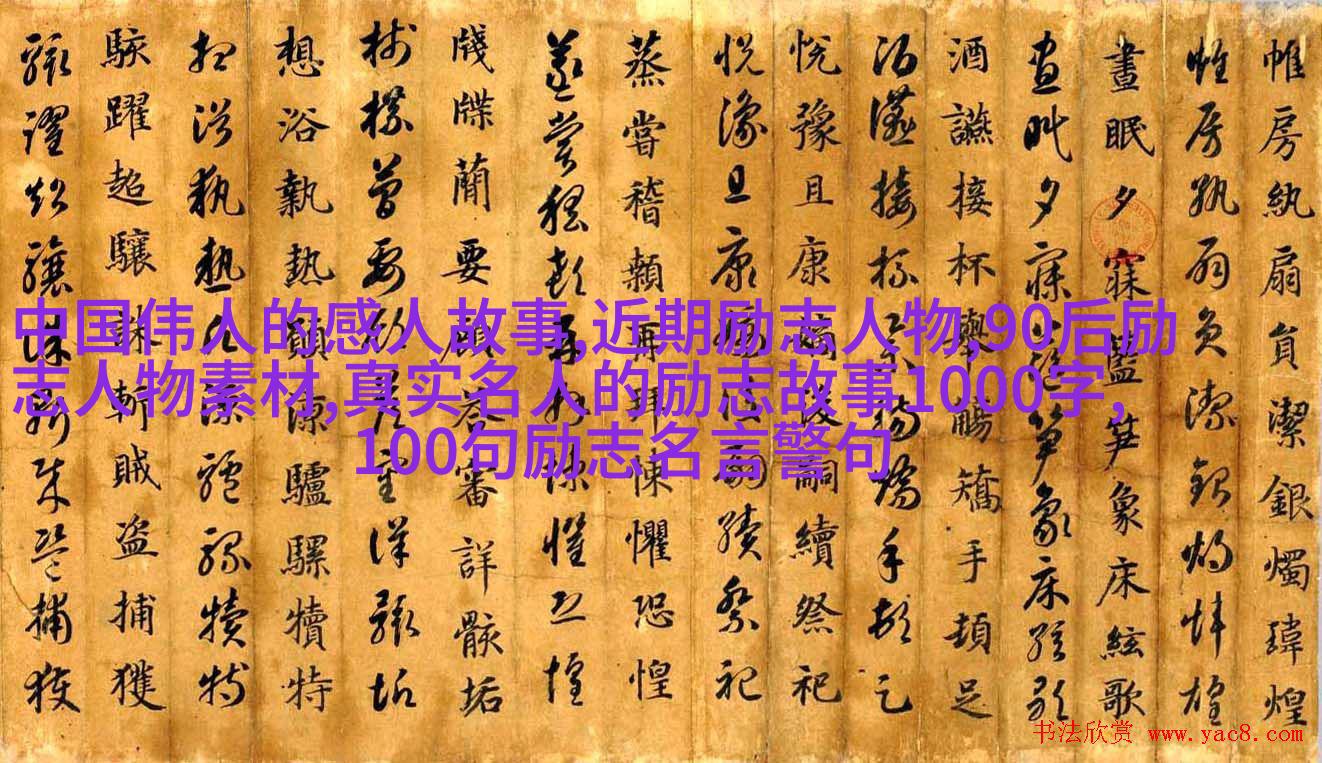 帷房紈扇員潔銀燭瑋煌
帷房紈扇員潔銀燭煒煌
晝眠夕寐籃笋象床絃歌
晝眠夕寐籃笋象床絃歌
酒讌接杯舉觴矯手頓足
酒讌接杯舉觴矯手頓足
悅豫且康嫡後嗣續祭祀
悅豫且康嫡後嗣續祭祀
蒸嘗稽顙再拜悚懼恐惶
蒸嘗稽顙再拜悚懼恐惶
牋牒蕳要顧答審詳骸垢
牋牒簡要顧答審詳骸垢
想浴執熱願涼驢騾犢特
想浴執熱願涼驢騾犢特
駭躍超驤誅斬賊盗捕獲
駭躍超驤誅斬賊盗捕獲
中国伟人的感人故事,近期励志人物,90后励
志人物素材,真实名人的励志故事1000字,
100句励志名言警句
书法欣赏 www.yac8.com